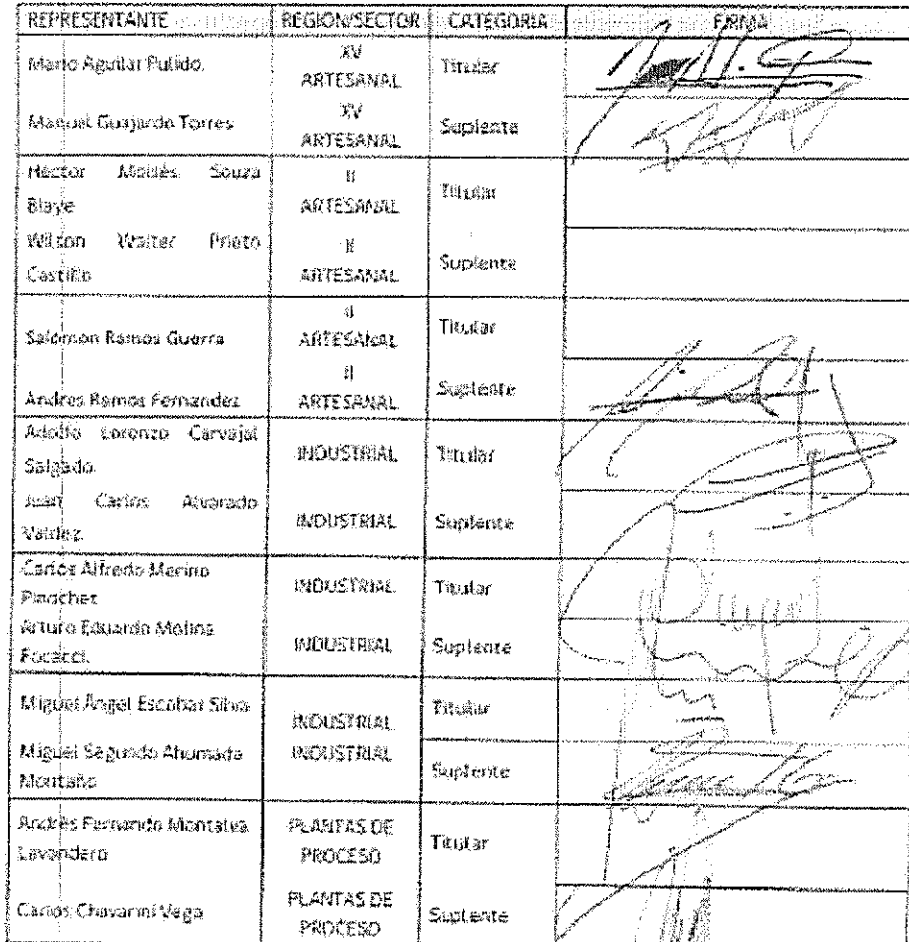 REPRESENTANTE REGION/SECTOR CATEGORIA FIRMA
Mario Aguilar Pulido. XV ARTESANAL Titular
Manuel Guajardo Torres XV ARTESANAL Suplente
Héctor Moisés Souza
Blaye II ARTESANAL Titular
Wilson Walter Prieto
Castillo II ARTESANAL Suplente
Salomon Ramos Guerra II ARTESANAL Titular
Andres Ramos Fernandez II ARTESANAL Suplente
Adolfo Lorenzo Carvajal
Salgado INDUSTRIAL Titular
Juan Carlos Alvarado
Valdez INDUSTRIAL Suplente
Carlos Alfredo Merino
Pinochet INDUSTRIAL Titular
Arturo Eduardo Molina
Focacci. INDUSTRIAL Suplente
Miguel Ángel Escobar Silva INDUSTRIAL Titular
Miguel Segundo Ahumada
Montaño INDUSTRIAL Suplente
Andrés Fernando Montalva
Lavandero PLANTAS DE PROCESO Titular
Carlos Chavarini Vega PLANTAS DE PROCESO Suplente